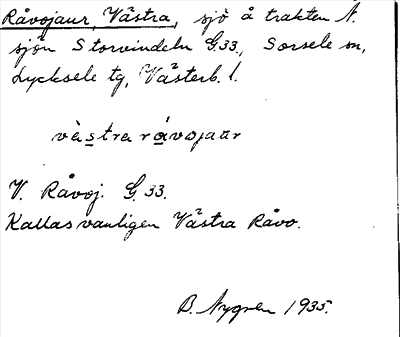 Råvojaur, Västra, sjö å trakten N.
sjön Storvindeln G.33., Sorsele sn,
Lycksele tg, Västerb. l.
västra råvojaur
V. Råvoj. G 33.
Kallas vanligen Västra Råvo.
B. Nygren 1935.